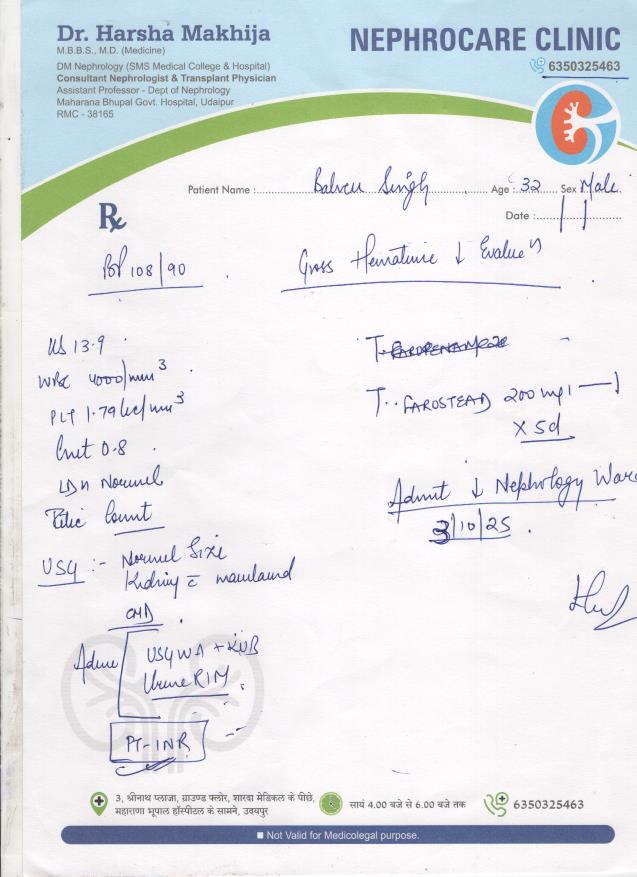 Dr. Harsha Makhija
M.B.B.S., M.D. (Medicine)
DM Nephrology (SMS Medical College & Hospital)
Consultant Nephrologist & Transplant Physician
Assistant Professor - Dept of Nephrology
Maharana Bhupal Govt. Hospital, Udaipur
RMC - 38165
NEPHROCARE CLINIC
6350325463
Patient Name : Singh Age : 32 Sex Male
Date :
Rx
BP 108/90
Gross Hematuria ↓
13.9
WBC 4000/mm3
PLT 1.79 /mm3
0.8
LDH Normal
Retic Count
USG :- Normal Size
Kidney c̄ maintained
CMD
T.
T. FAROSTEAD 200 mg 1 — 1
X 5d
Admit ↓ Nephrology Ward
3/10/25
USG WA + KUB
Urine R/M
PT-INR
3, श्रीनाथ प्लाजा, ग्राउण्ड फ्लोर, शारदा मेडिकल के पीछे,
महाराणा भूपाल हॉस्पीटल के सामने, उदयपुर
सायं 4.00 बजे से 6.00 बजे तक
6350325463
Not Valid for Medicolegal purpose.